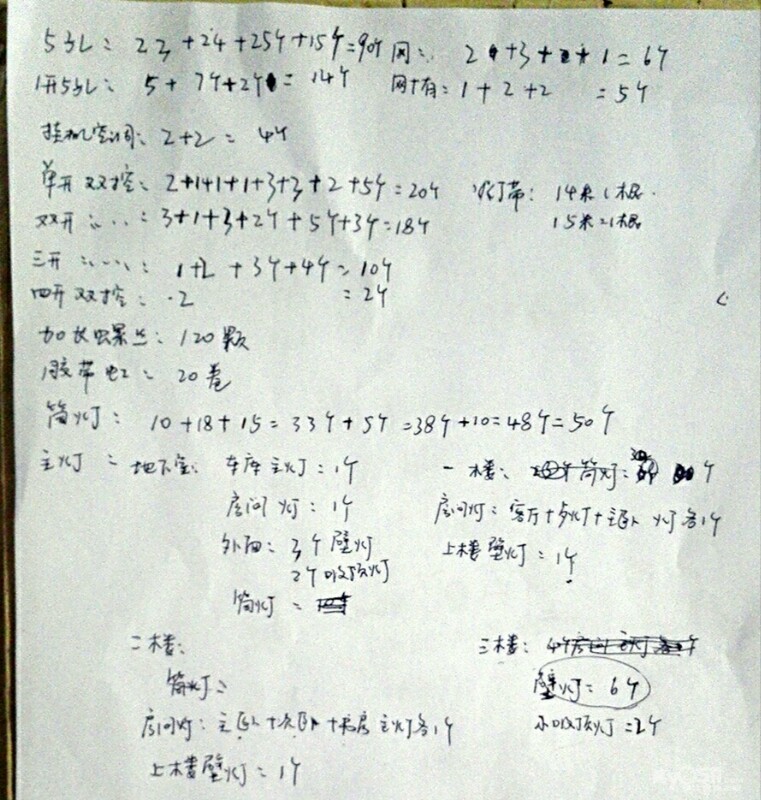 5孔: 23+24+25个+15个=90个 网: 2+3+1=6个
1开5孔: 5+7个+2个=14个 网+有: 1+2+2 =5个
挂机空调: 2+2=4个
单开双控: 2+1+1+1+3+3+2+5个=20个 灯带: 14米1根
双开〃: 3+1+3+2个+5个+3个=18个 15米=1根
三开〃: 1+2+3个+4个=10个
四开双控: 2 =2个
加长螺丝: 120颗
胶带电工: 20卷
筒灯: 10+18+15=33个+5个=38个+10=48个=50个
主灯: 地下室: 车库主灯:1个 一楼:
房间灯:1个 房间灯: 客厅+灯+主卧灯各1个
外面: 3个壁灯 上楼壁灯=1个
2个吸顶灯
筒灯:
二楼: 三楼:
筒灯: 壁灯=6个
房间灯: 主卧+次卧+书房主灯各1个 小吸顶灯=2个
上楼壁灯=1个